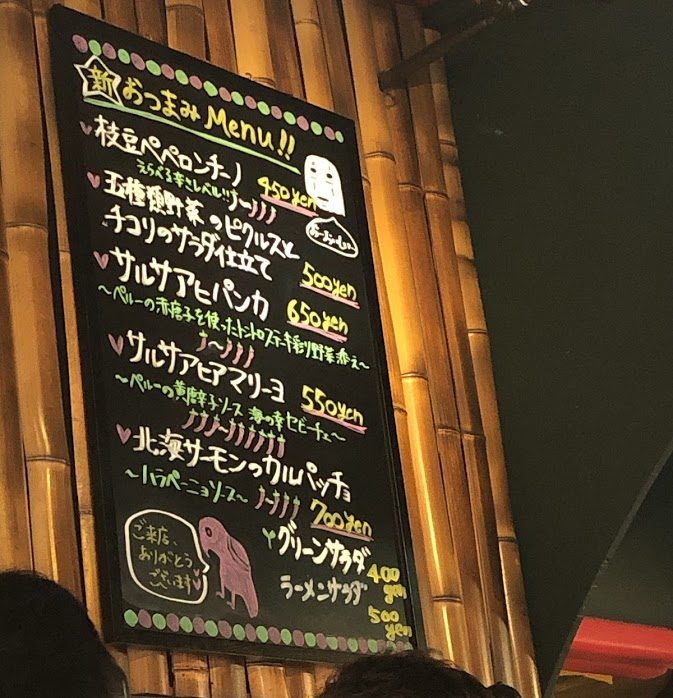 新 おつまみ Menu!!
枝豆ペペロンチーノ
えらべる辛さレベル 450yen
五種類野菜のピクルスと
チコリのサラダ仕立て 500yen
サルサアヒパンカ 650yen
～ペルーの赤唐辛子を使ったトントロステーキ彩り野菜添え～
サルサアヒアマリーヨ 550yen
～ペルーの黄唐辛子ソース 海の幸セビーチェ～
北海サーモンのカルパッチョ
～ハラペーニョソース～ 700yen
グリーンサラダ 400yen
ラーメンサラダ 500yen
ご来店、
ありがとう
ございます